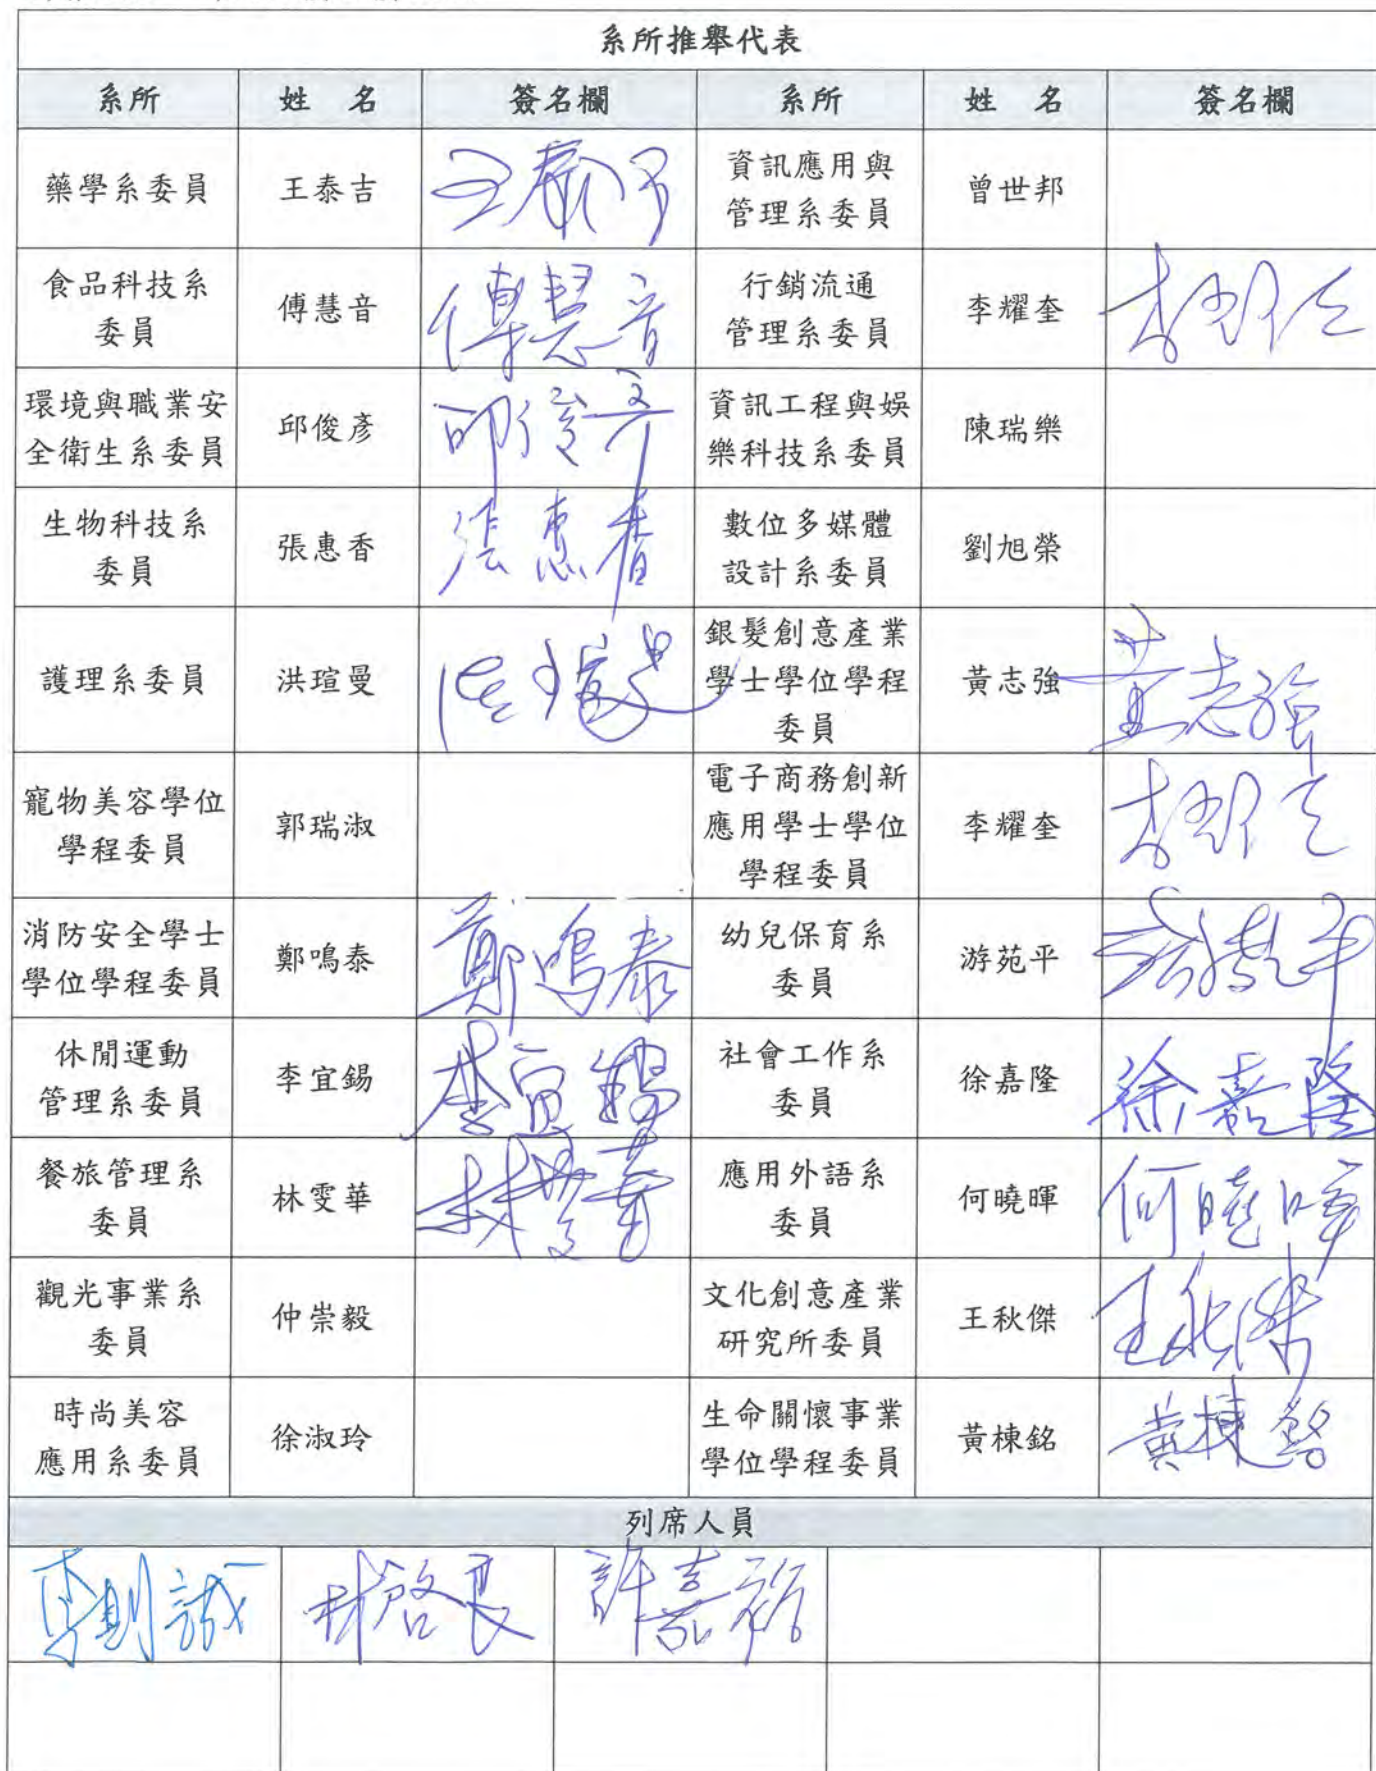 系所推舉代表
系所 姓 名 簽名欄 系所 姓 名 簽名欄
藥學系委員 王泰吉 王泰吉 資訊應用與
管理系委員 曾世邦
食品科技系
委員 傅慧音 傅慧音 行銷流通
管理系委員 李耀奎 李耀奎
環境與職業安
全衛生系委員 邱俊彥 邱俊彥 資訊工程與娛
樂科技系委員 陳瑞樂
生物科技系
委員 張惠香 張惠香 數位多媒體
設計系委員 劉旭榮
護理系委員 洪瑄曼 洪瑄曼 銀髮創意產業
學士學位學程
委員 黃志強 黃志強
寵物美容學位
學程委員 郭瑞淑 電子商務創新
應用學士學位
學程委員 李耀奎 李耀奎
消防安全學士
學位學程委員 鄭鳴泰 鄭鳴泰 幼兒保育系
委員 游苑平 游苑平
休閒運動
管理系委員 李宜錫 李宜錫 社會工作系
委員 徐嘉隆 徐嘉隆
餐旅管理系
委員 林雯華 林雯華 應用外語系
委員 何曉暉 何曉暉
觀光事業系
委員 仲崇毅 文化創意產業
研究所委員 王秋傑 王秋傑
時尚美容
應用系委員 徐淑玲 生命關懷事業
學位學程委員 黃棟銘 黃棟銘
列席人員
林啓良 許嘉裕